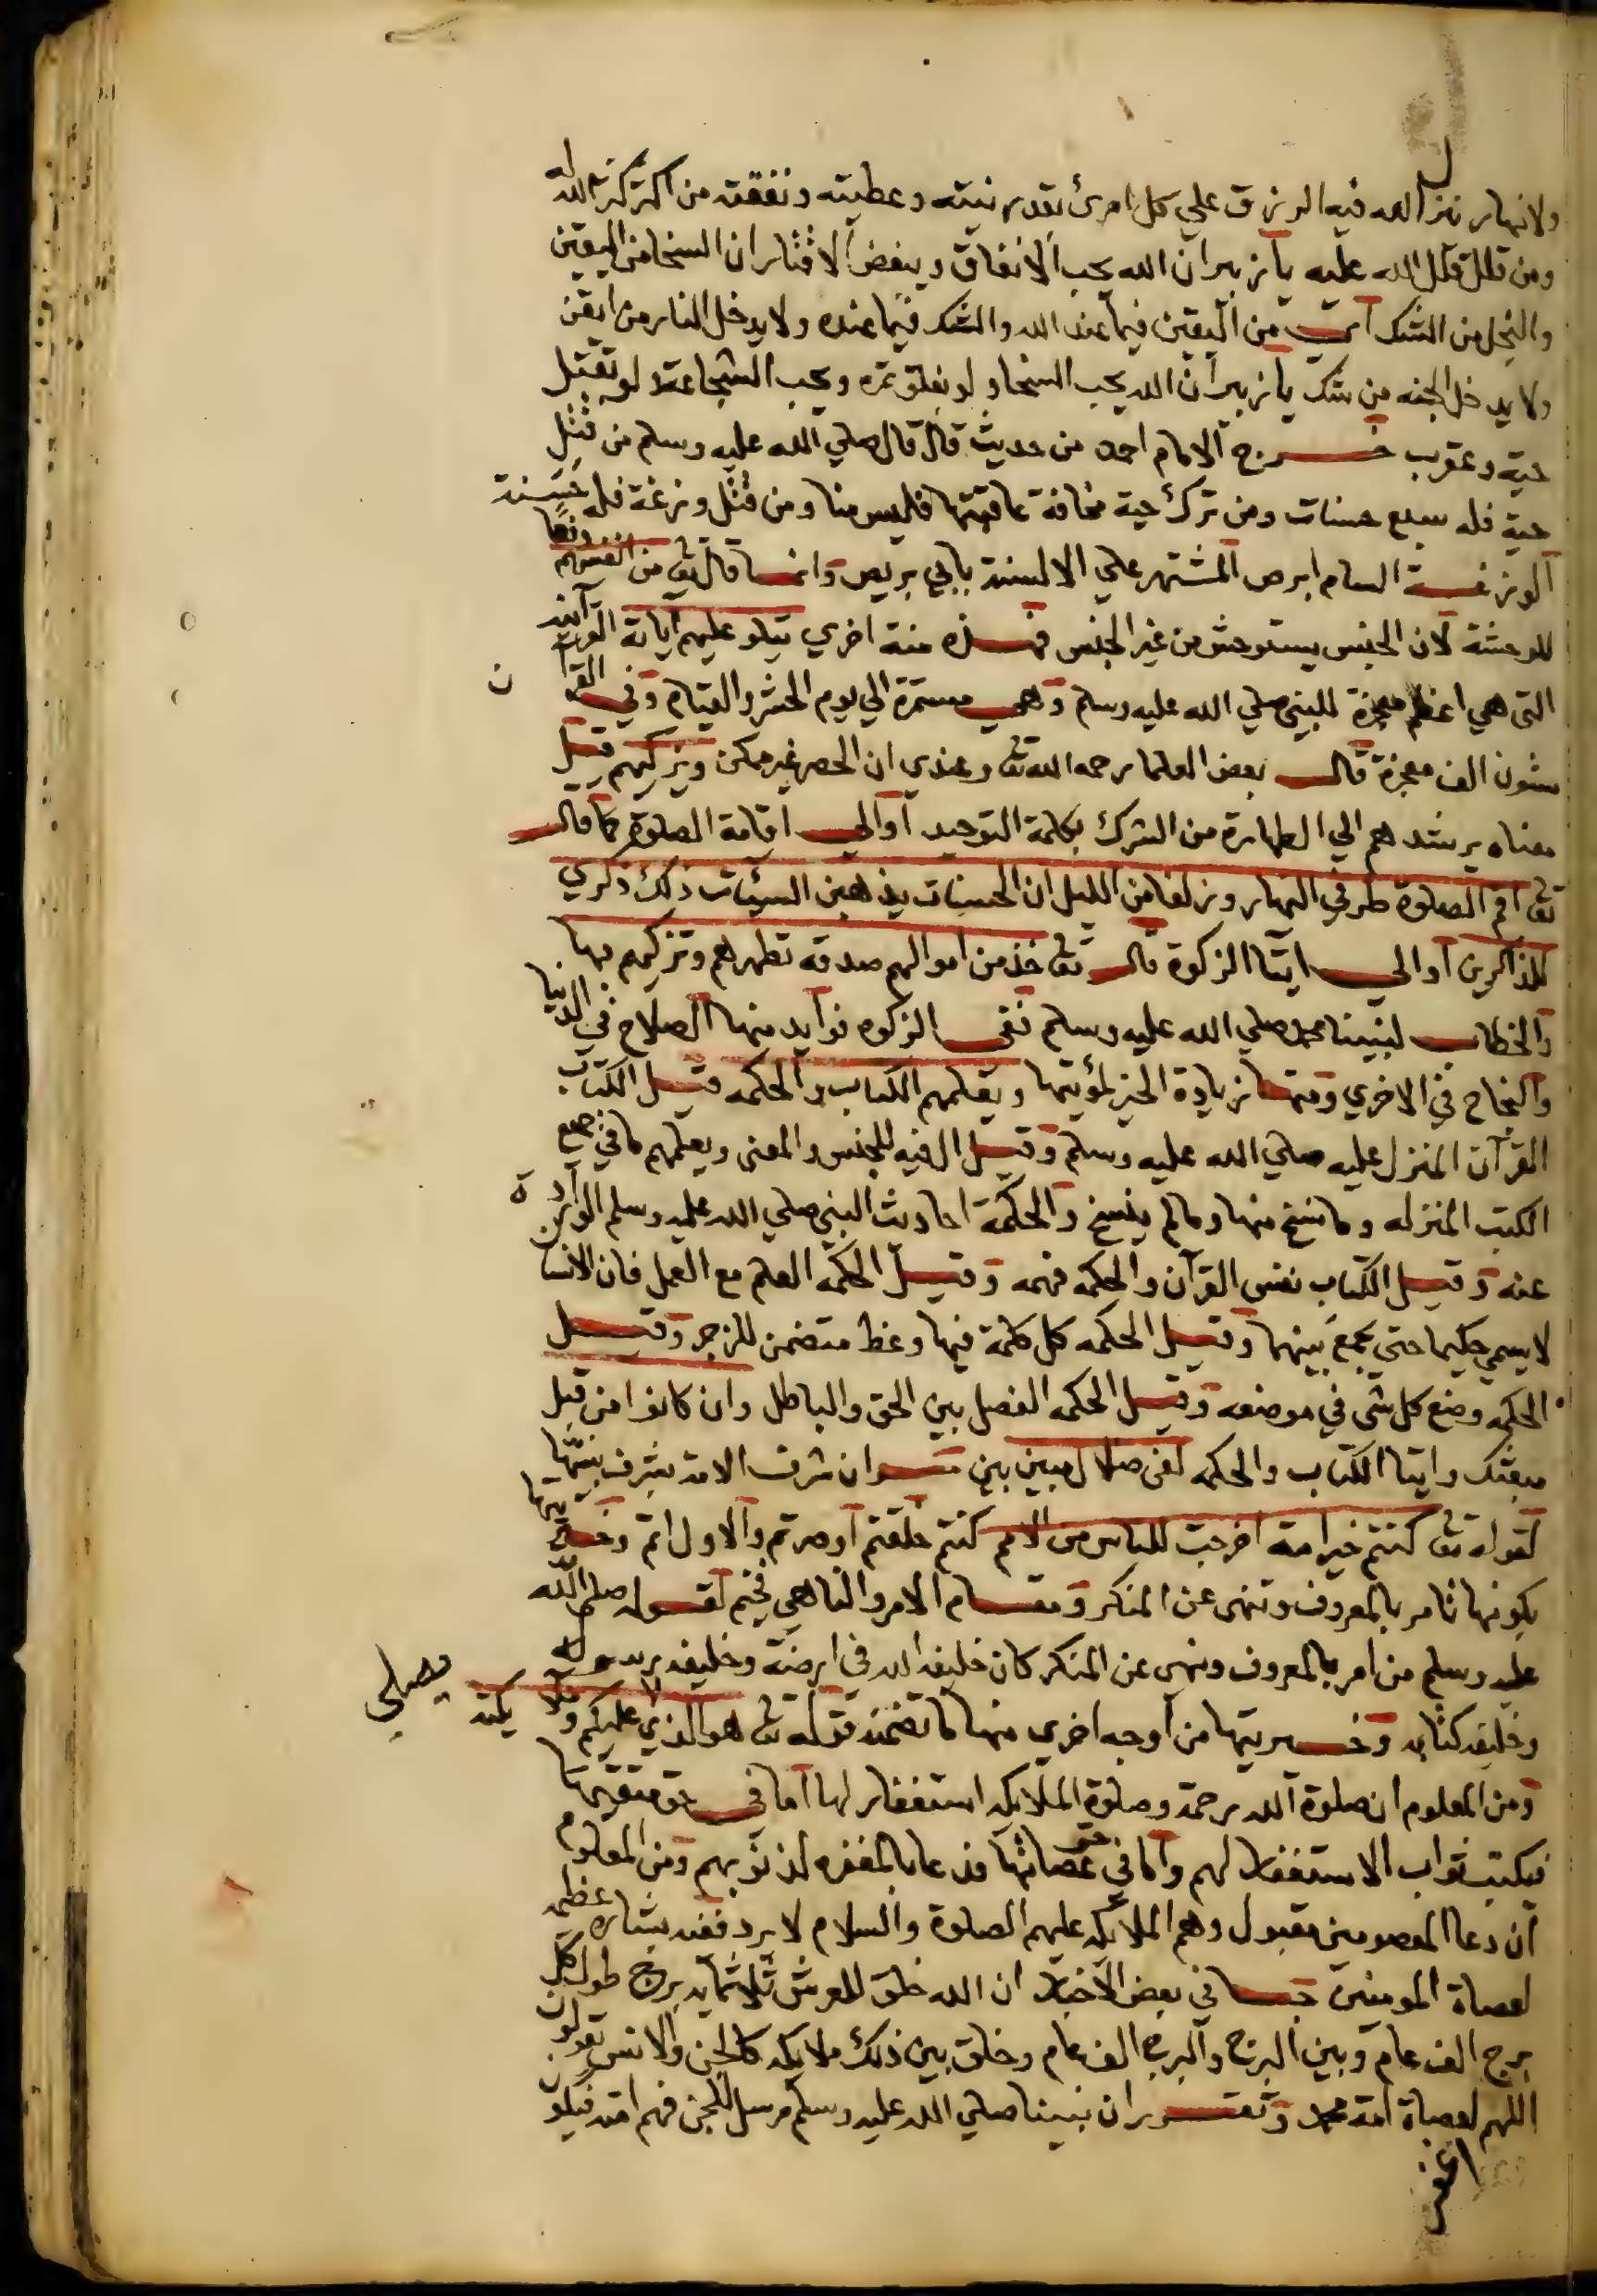 ولانهار ينزل الله فيه الرزق علي كل امرئ بقدر نيته وعطيته ونفقته من اكثر كثر الله له
ومن قلل قلل الله عليه يا زبير ان الله يحب الانفاق ويبغض الاقتار ان السخا من اليقين
والبخل من الشك اي من اليقين فيما عند الله والشك فيما عنده ولا يدخل النار من ايقن
ولا يدخل الجنه من شك يا زبير ان الله يحب السخا ولو بفلق تمره ويحب الشجاعة ولو بقتل
حية وعقرب خرج الامام احمد من حديث قال قال صلي الله عليه وسلم من قتل
حية فله سبع حسنات ومن ترك حية مخافة عاقبتها فليس منا ومن قتل وزغة فله حسنة
الوزغة السام ابرص المشتهر علي الالسنة بابي بريص وانما قال تعا من انفسهم دفعا
للوحشة لان الجنس يستوحش من غير الجنس فهذه منة اخري يتلو عليهم اياته القرآنيه
التى هي اعظم معجزة للنبي صلي الله عليه وسلم وهي مستمرة الي يوم الحشر والقيام وفي القرآ ن
ستون الف معجزة قال بعض العلما رحمه الله تعا وعندي ان الحصر غير ممكن ويزكيهم قيل
معناه يرشدهم الي الطهارة من الشرك بكلمة التوحيد او الي اقامة الصلوة كما قال
تعا اقم الصلوة طرفي النهار وزلفا من الليل ان الحسنات يذهبن السيئات ذلك ذكري
للذاكرين او الي ايتا الزكوة قال تعا خذ من اموالهم صدقة تطهرهم وتزكيهم بها
والخطاب لنبينا محمد صلي الله عليه وسلم ففي الزكوه فوايد منها الصلاح في الدنيا
والنجاح في الاخري ومنها زيادة الخير لمؤتيها ويعلمهم الكتاب والحكمه قيل الكتاب
القرآن المنزل عليه صلي الله عليه وسلم وقيل ال فيه للجنس والمعنى ويعلمهم ما في جميع
الكتب المنزله وما نسخ منها وما لم ينسخ والحكمة احاديث النبي صلي الله عليه وسلم الوارد ة
عنه وقيل الكتاب نفس القرآن والحكمه فهمه وقيل الحكمه العلم مع العمل فان الانسان
لا يسمي حكيما حتي يجمع بينهما وقيل الحكمه كل كلمة فيها وعظ متضمن للزجر وقيل
الحكمه وضع كل شى في موضعه وقيل الحكمه الفصل بين الحق والباطل وان كانوا من قبل
مبعثك وايتا الكتاب والحكمه لفى ضلال مبين بين وان شرف الامة بشرف نبيها
لقوله تعا كنتم خير امة اخرجت للناس من الامم كنتم خلقتم او صرتم والاول اتم وخيريتها
بكونها تامر بالمعروف وتنهى عن المنكر ومقام الامر والناهي فخيم لقوله صلى الله
عليه وسلم من امر بالمعروف ونهى عن المنكر كان خليفة الله في ارضه وخليفه رسوله
وخليفه كتابه وخيريتها من اوجه اخري منها ما تضمنه قوله تعا هو الذي يصلي عليكم وملا يكته
ومن المعلوم ان صلوة الله رحمة وصلوة الملايكه استغفار لها اما في حق متقيها
فيكتب ثواب الاستغفار لهم واما في حق عصاتها فدعا بالمغفره لذنوبهم ومن المعلوم
ان دعا المعصومين مقبول وهم الملايكه عليهم الصلوة والسلام لا يرد ففيه بشاره عظيمه
لعصاة المومنين جا في بعض الاخبار ان الله خلق للعرش ثلاثمايه برج طول كل
برج الف عام وبين البرج والبرج الف عام وخلق بين ذلك ملايكه كالجن والانس يقولون
اللهم لعصاة امة محمد وتقرر ان نبينا صلي الله عليه وسلم مرسل للجن فهم امته فيكون
اغفر